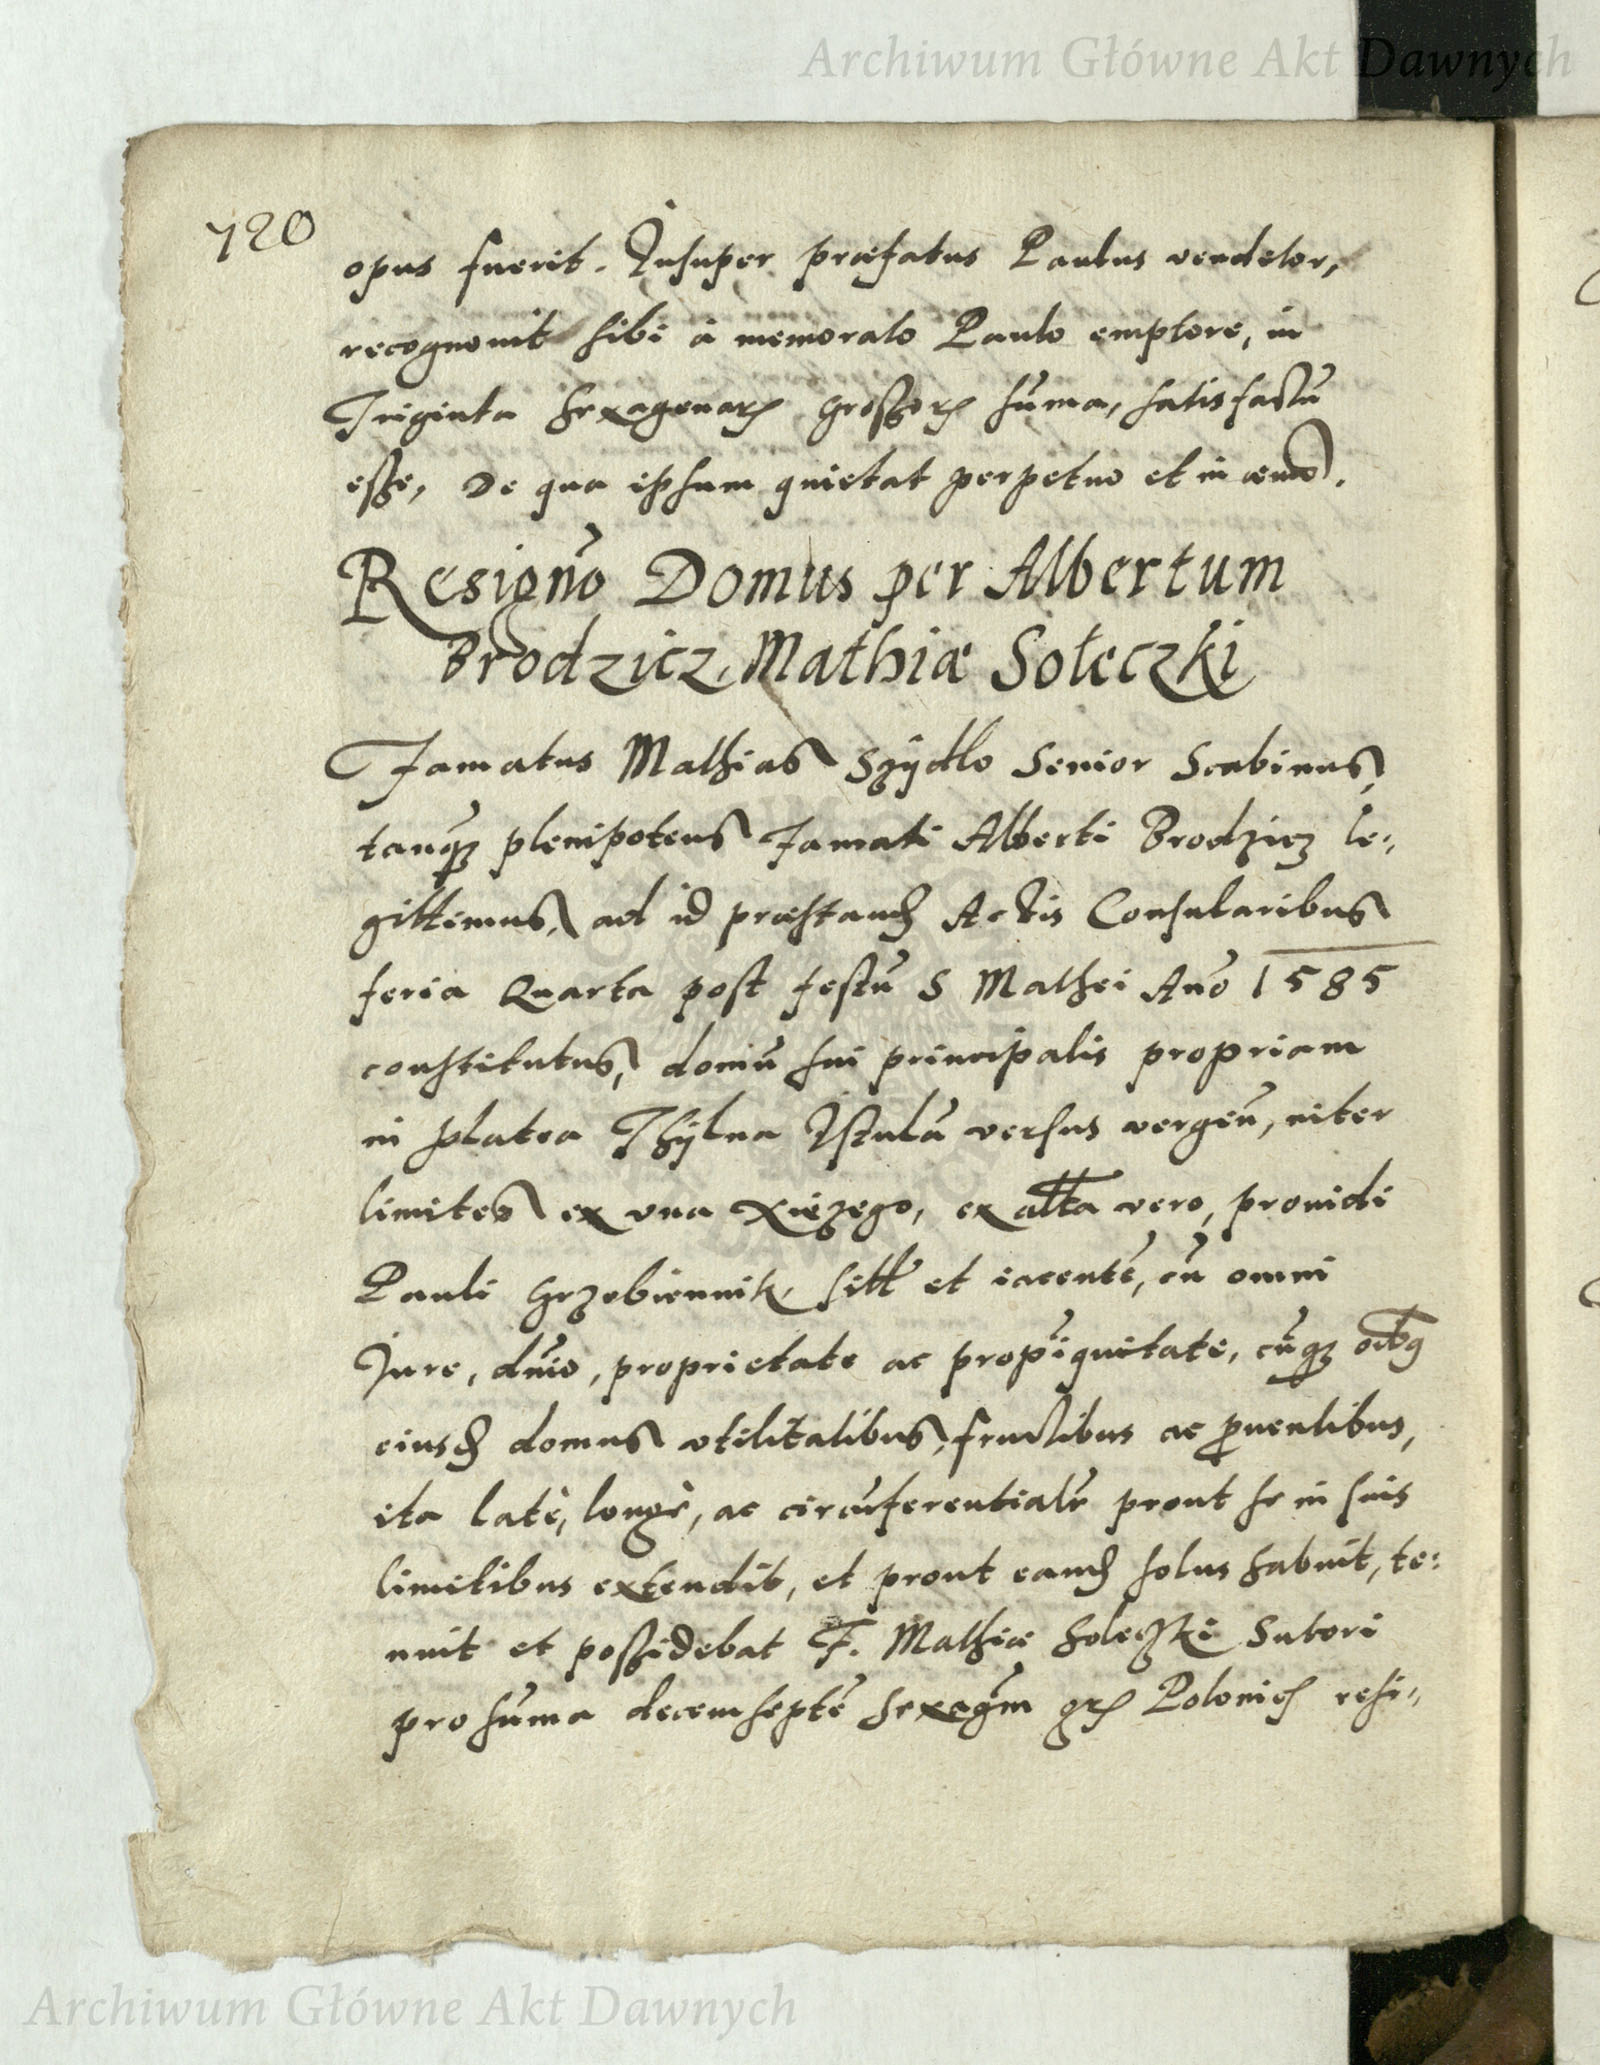 Archiwum Główne Akt Dawnych
720
opus fuerit. Insuper præfatus Paulus venditor,
recognovit sibi à memorato Paulo emptore, in
Triginta sexagenarꝝ grossorꝝ sūma, satisfactū
esse, De qua ipsum quietat perpetuo et in ævuō.
Resignō Domus per Albertum
Brodzicz, Mathiæ Soleczki
Famatus Mathias Szÿdlo Senior Scabinus,
tanqꝫ plenipotens Famati Alberti Brodzicz le-
gittimus, ad id præstanđ Actis Consularibus
feria Quarta post festū S Mathei Año 1585
constitutus, domū sui principalis propriam
in platea Thÿlna Istulā versus vergeñ, inter
limites ex una Xiezego, ex alta vero, providi
Pauli Grzebiennik, sitt et iacentē, cū omni
Jure, dñio, proprietate ac propiquitate, cūqꝫ oībꝫ
eiusđ domus utilitatibus, fructibus ac ꝓventibus,
ita latè, longè, ac circūferentialr prout se in suis
limitibus extendit, et prout eanđ solus habuit, te-
nuit et possidebat F. Mathiæ Soleczki Sutori
pro sūma decemseptē sexagm grꝝ Polonicꝭ resi-
Archiwum Główne Akt Dawnych